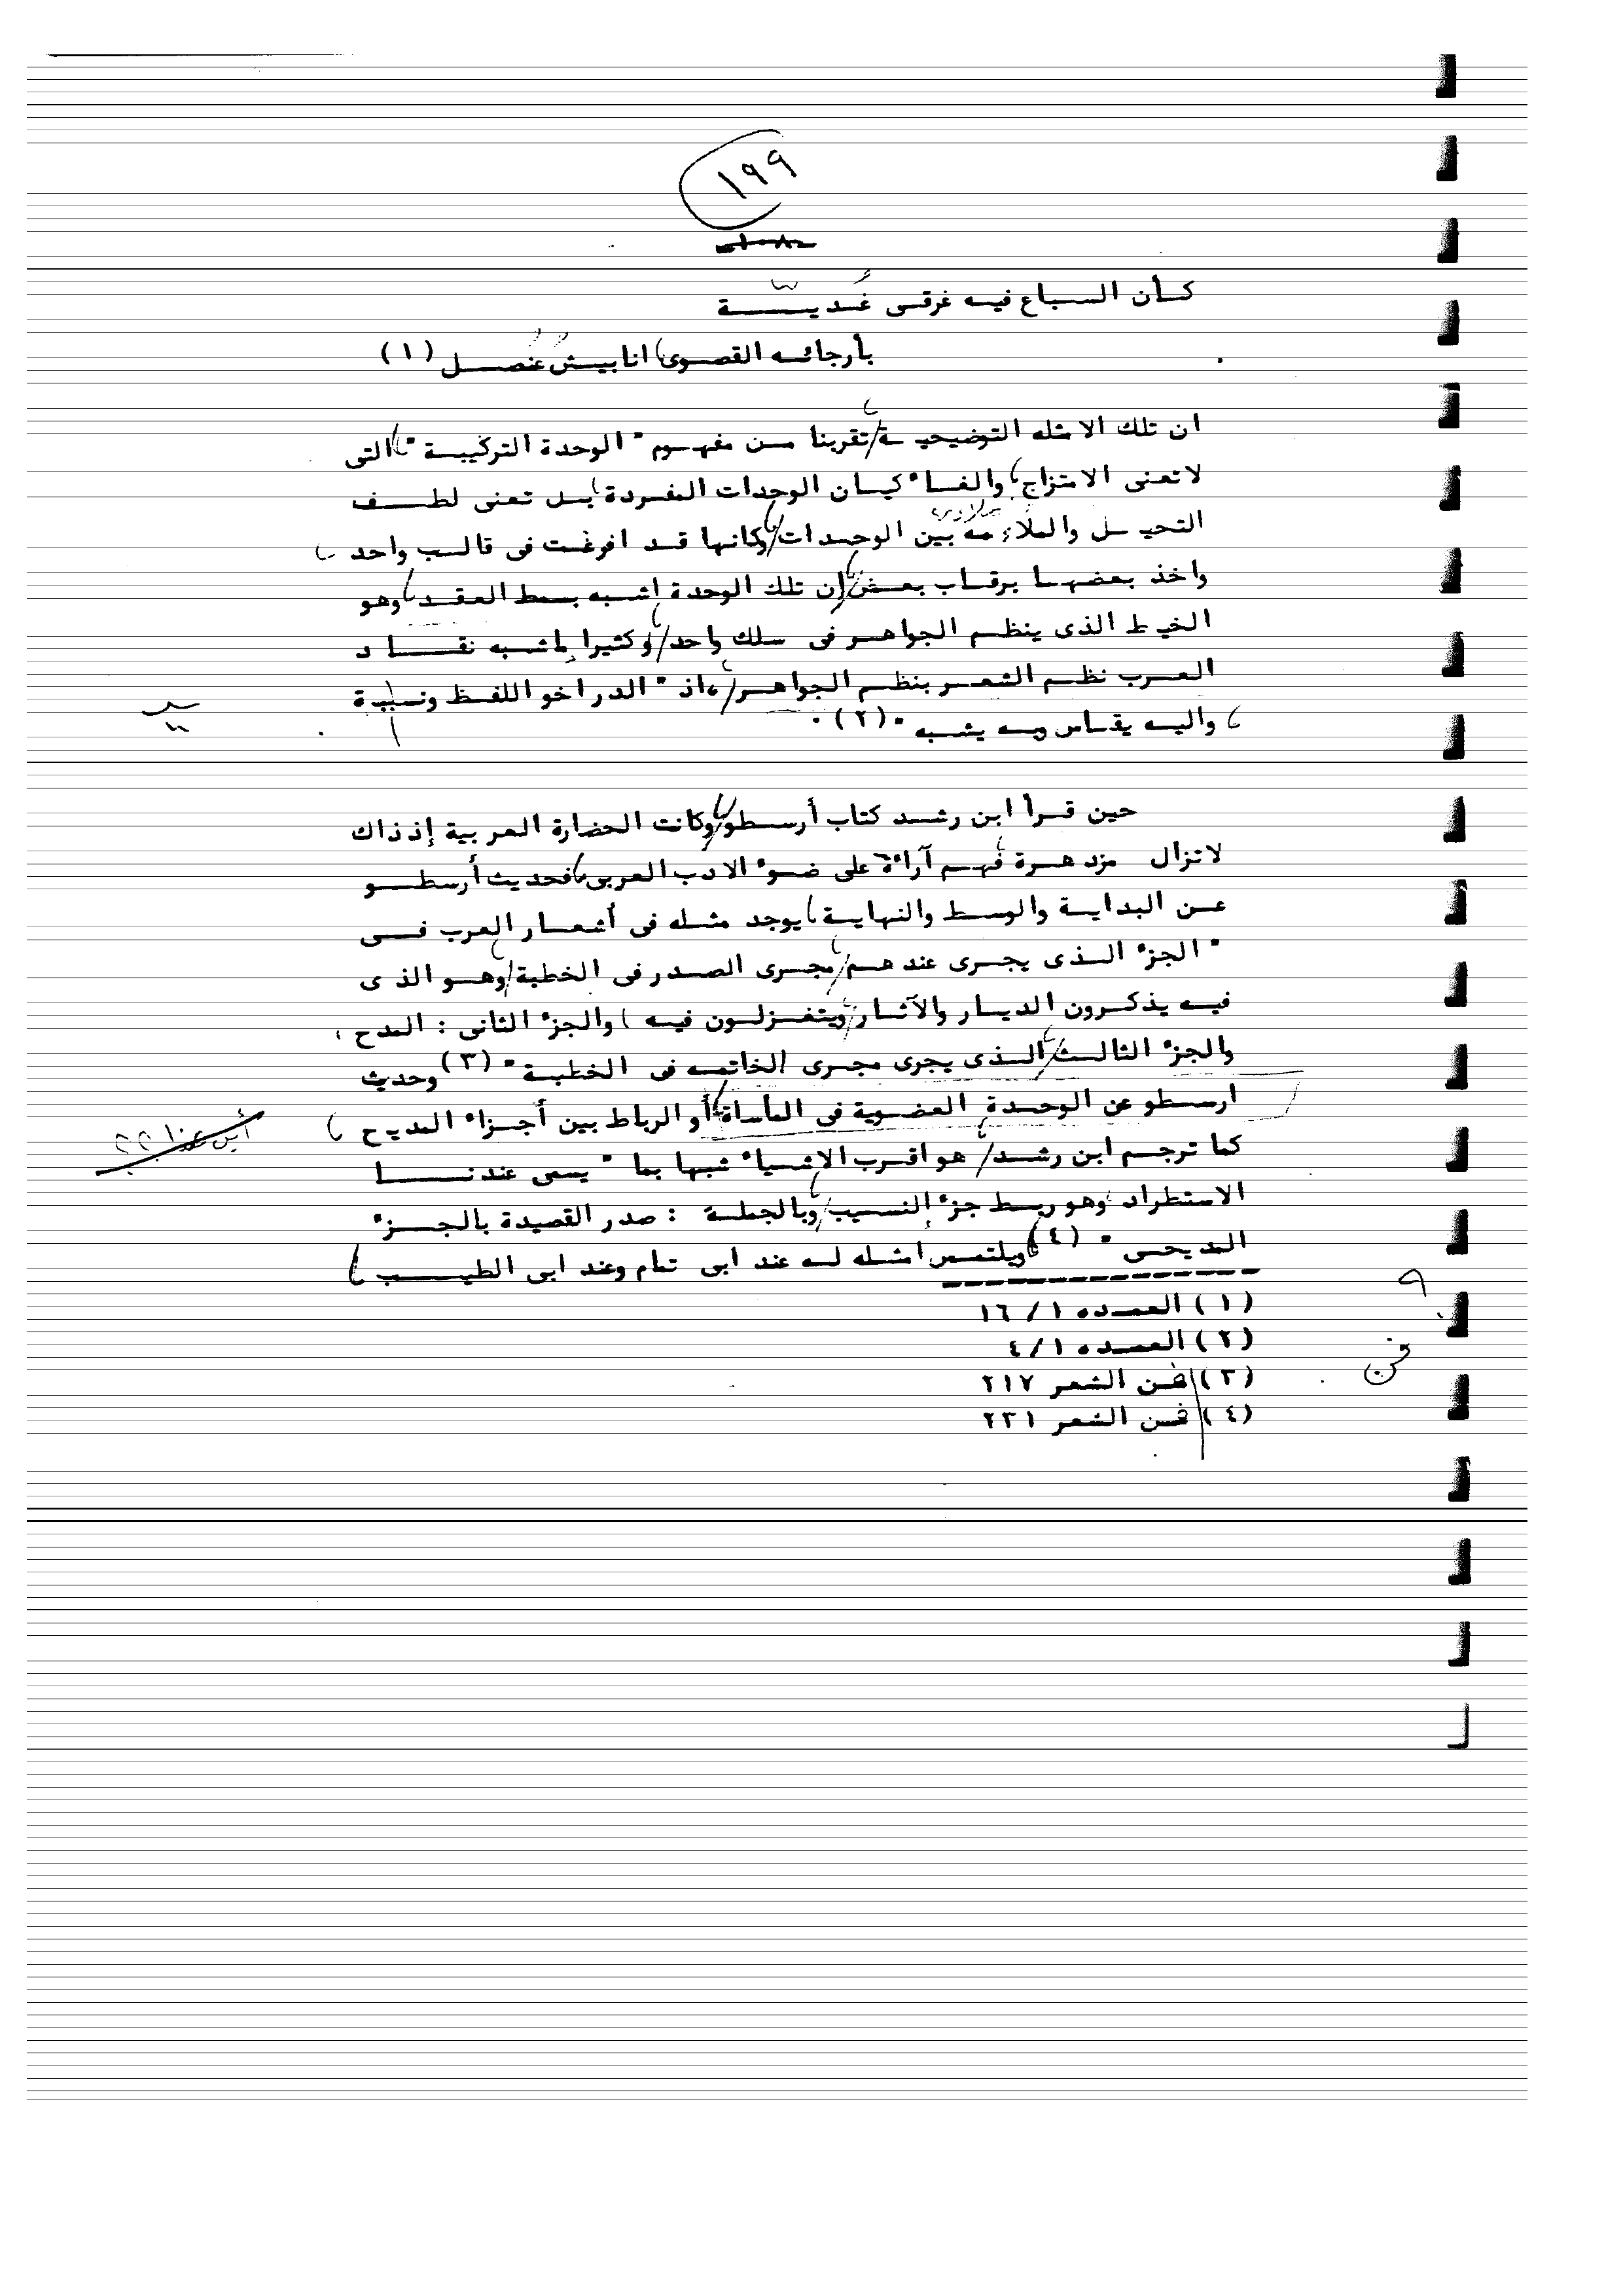 ١٩٩
كأن السباع فيه غرقى غُديّة
بأرجائه القصوى انابيش عُنصُل (١)
ان تلك الامثله التوضيحية تقربنا من مفهوم " الوحدة التركيبية " التى
لاتعنى الامتزاج والغاء كيان الوحدات المفردة بل تعنى لطف
التحيل والملازمه بين الوحدات وكانها قد افرغت فى قالب واحد
واخذ بعضها برقاب بعض إن تلك الوحدة اشبه بسط العقد وهو
الخيط الذى ينظم الجواهر فى سلك واحد وكثيرا ماشبه نقاد
العرب نظم الشعر بنظم الجواهر، اذ " الدر اخو اللفظ ونسيبة
واليه يقاس وبه يشبه " (٢) .
حين قرأ ابن رشد كتاب أرسطو وكانت الحضارة العربية إذ ذاك
لاتزال مزدهرة فهم آراءة على ضوء الادب العربى فحديث أرسطو
عن البداية والوسط والنهاية، يوجد مثله فى أشعار العرب فى
" الجزء الذى يجرى عندهم مجرى الصدر فى الخطبة وهو الذى
فيه يذكرون الديار والآثار ويتغزلون فيه، والجزء الثانى : المدح،
والجزء الثالث الذى يجرى مجرى الخاتمه فى الخطبة " (٣) وحديث
ارسطو عن الوحدة العضوية فى المأساة أو الرباط بين أجزاء المديح
كما ترجم ابن رشد هو اقرب الاشياء شبها بما " يسمى عندنا
الاستطراد وهو ربط جزء النسيب وبالجملة : صدر القصيدة بالجزء
المديحى " (٤) ويلتمس امثله له عند ابى تمام وعند ابى الطيب
(١) العمده ١ / ١٦
(٢) العمده ١ / ٤
(٣) فن الشعر ٢١٧
(٤) فن الشعر ٢٣١
فن